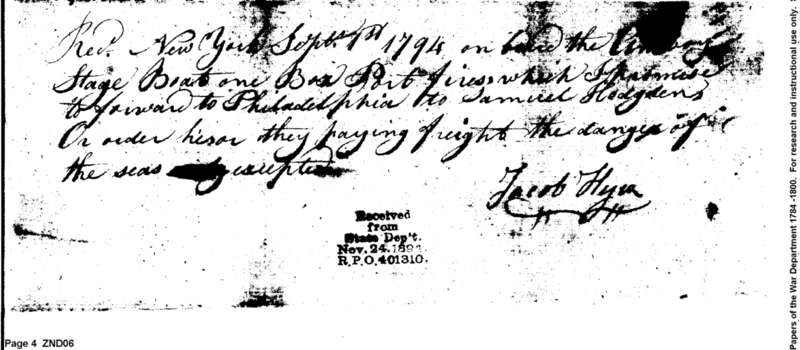 Recd. New York Septr. 1st 1794 on board the Amboy
Stage Boat one Box Port fires which I promise
to forward to Philadelphia to Samuel Hodgdens
Or order he or they paying freight the danger of
the seas excepted
Jacob
Received
from
State Dep't.
Nov. 24. 189
R.P.O. 401310.
Page 4 ZND06
Papers of the War Department 1784 -1800. For research and instructional use only.